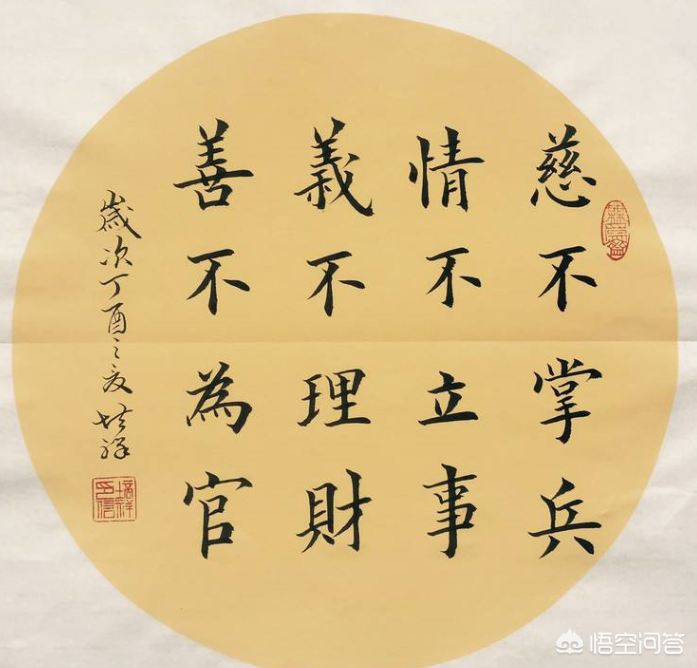 慈不掌兵
情不立事
義不理財
善不為官
歲次丁酉之夏
培祥
悟空问答